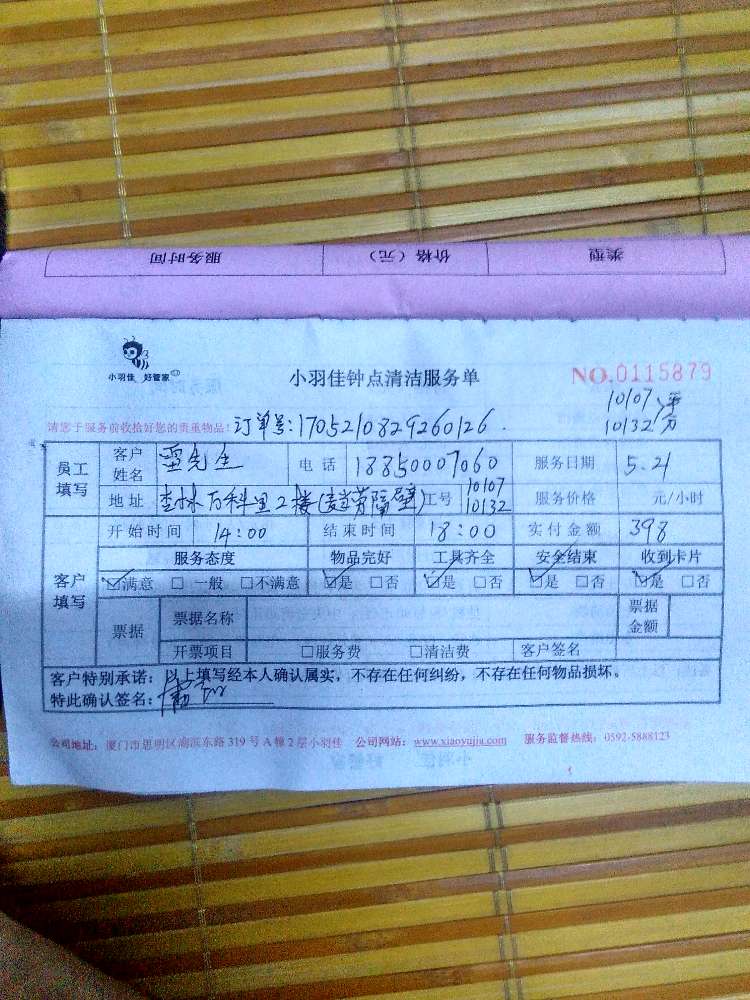 类型 价格（元） 服务时间
小羽佳 好管家
小羽佳钟点清洁服务单
NO.0115879
请您于服务前收拾好您的贵重物品！ 订单号:170521082926 0126.
10107 平
10132 分
员工填写 客户姓名 雷先生 电话 18850007060 服务日期 5.21
地址 杏林万科里2楼 隔壁 工号 10107 10132 服务价格 元/小时
客户填写 开始时间 14:00 结束时间 18:00 实付金额 398
服务态度 物品完好 工具齐全 安全结束 收到卡片
☑满意 □一般 □不满意 ☑是 □否 ☑是 □否 ☑是 □否 ☑是 □否
票据 票据名称 票据金额
开票项目 □服务费 □清洁费 客户签名
客户特别承诺：以上填写经本人确认属实，不存在任何纠纷，不存在任何物品损坏。
特此确认签名：
公司地址：厦门市思明区湖滨东路319号A幢2层小羽佳 公司网站：www.xiaoyujia.com 服务监督热线：0592-5888123